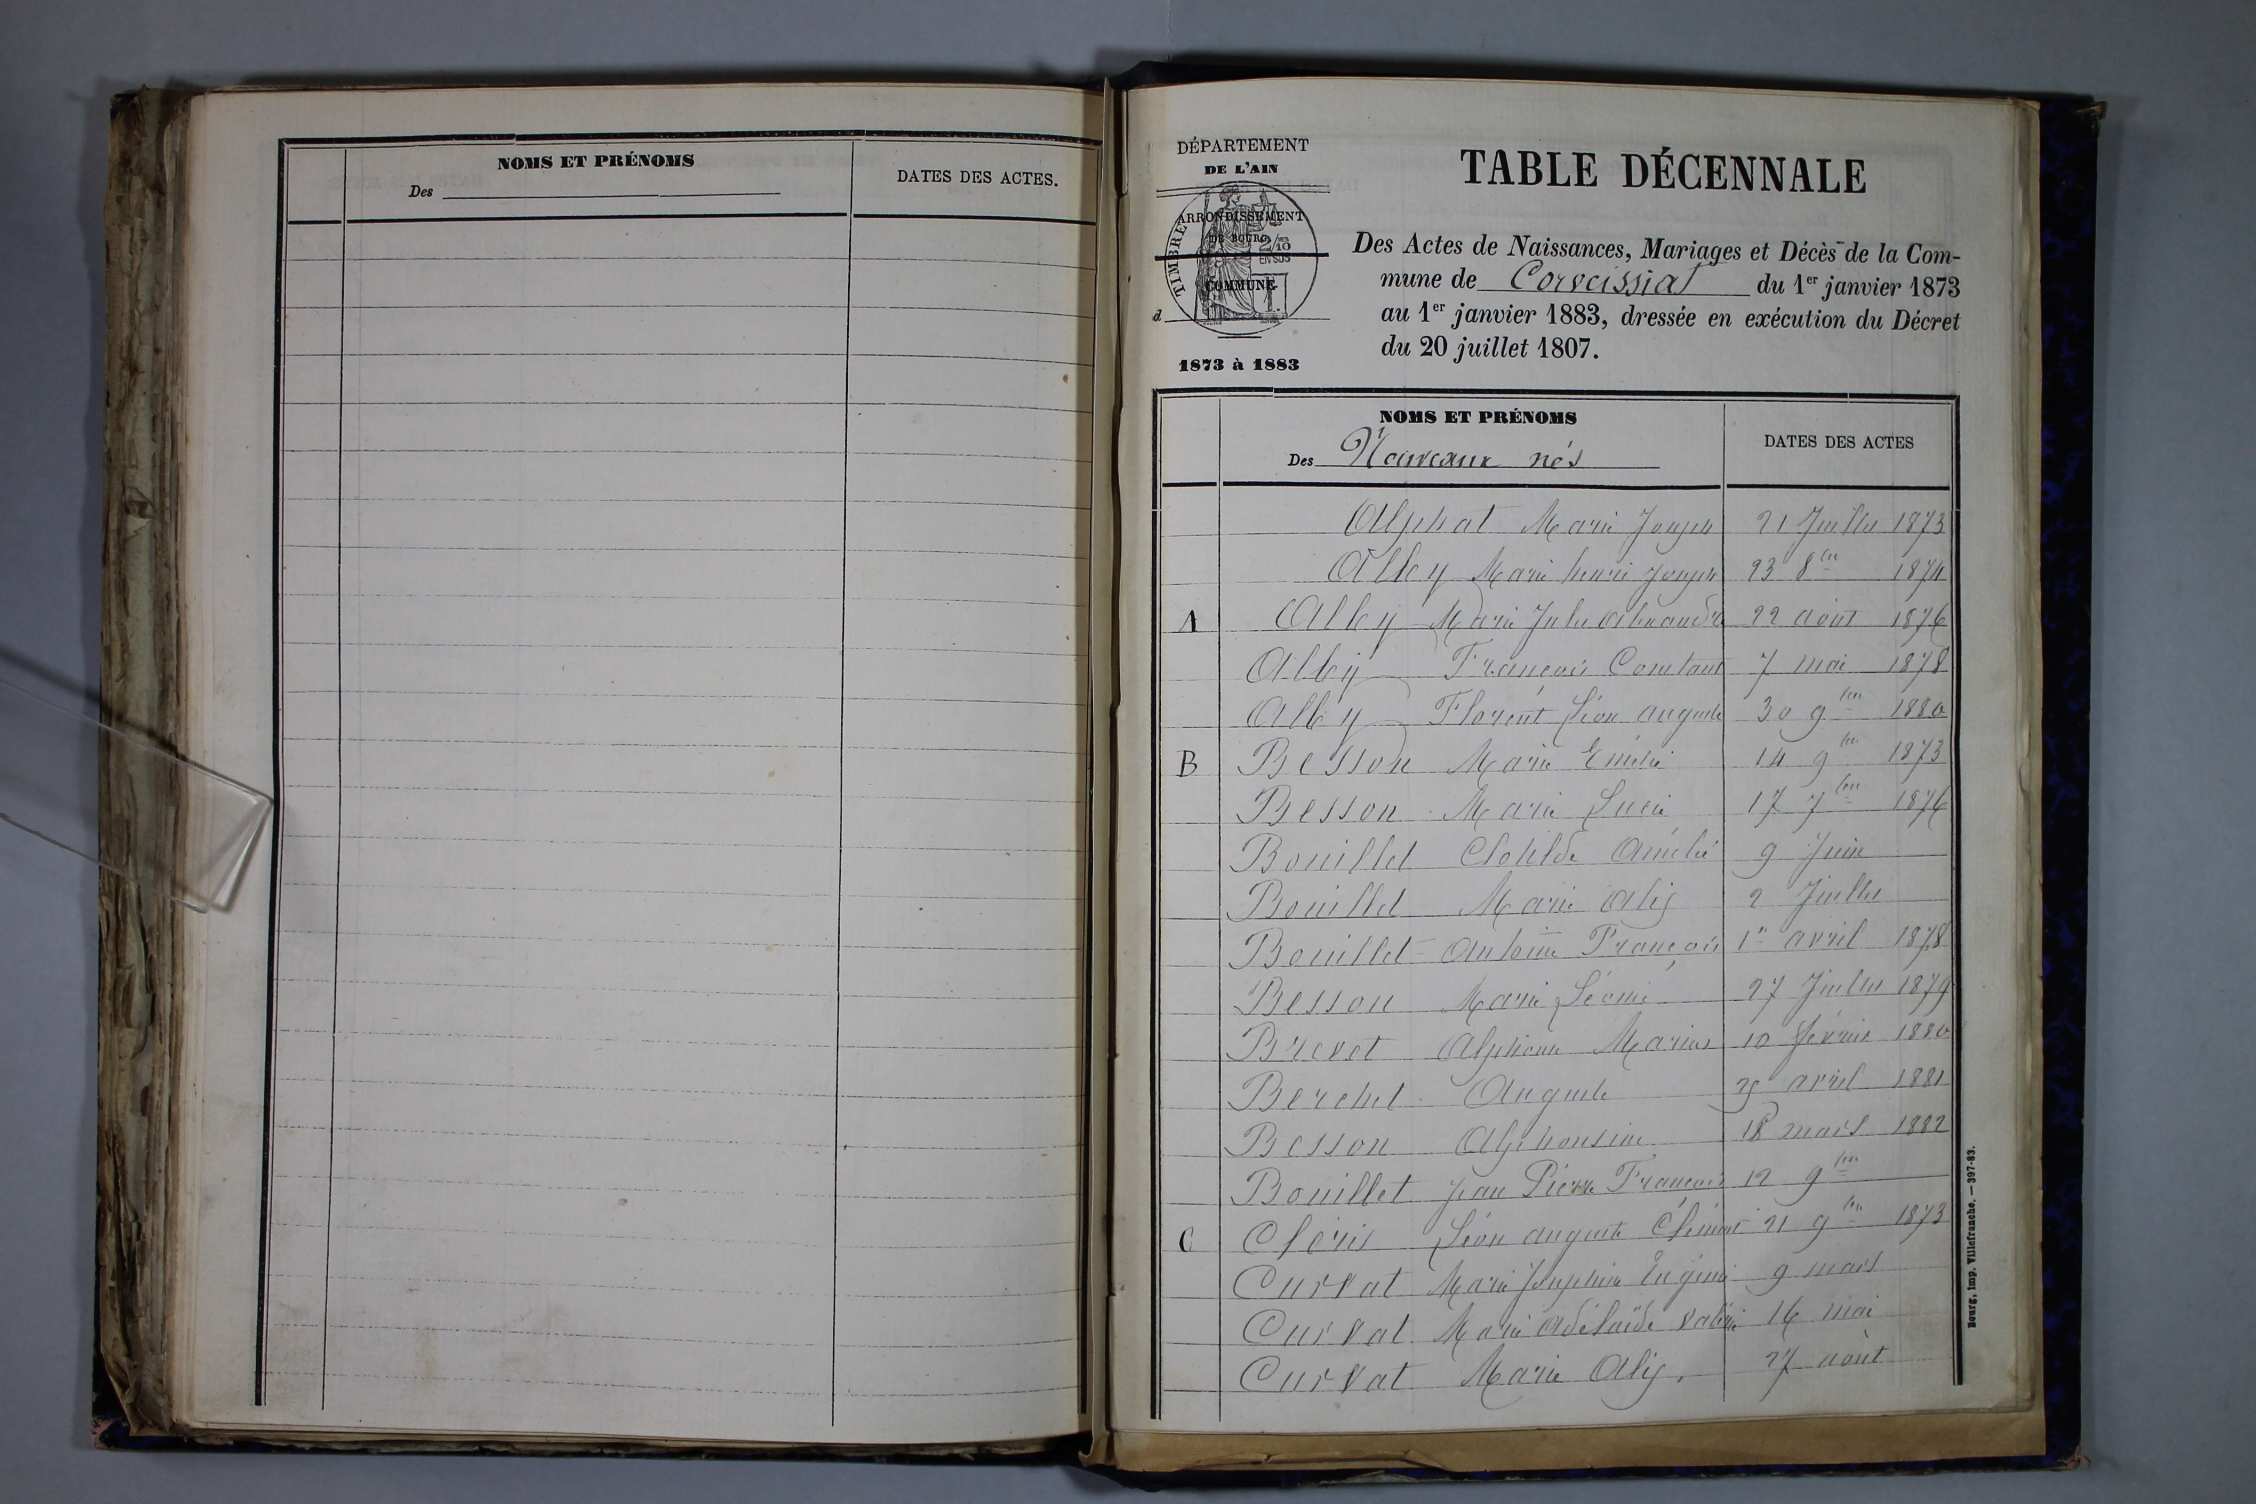 NOMS ET PRÉNOMS
Des
DATES DES ACTES.
DÉPARTEMENT
DE L'AIN
ARRONDISSEMENT
DE BOURG
TIMBRE
2/10
EN SUS
COMMUNE
d
1873 à 1883
TABLE DÉCENNALE
Des Actes de Naissances, Mariages et Décès de la Com-
mune de Corveissiat du 1er janvier 1873
au 1er janvier 1883, dressée en exécution du Décret
du 20 juillet 1807.
NOMS ET PRÉNOMS
Des Nouveaux nés
DATES DES ACTES
Alphat Marie Joseph 21 Juillet 1873
Alby Marie henri Joseph 23 8bre 1874
A Alby Marie Jules Alexandre 22 août 1876
Alby François Constant 7 mai 1878
Alby Florent Léon auguste 30 9bre 1880
B Besson Marie Emélie 14 9bre 1873
Besson Marie Lucie 17 7bre 1876
Bouillet Clotilde Amélie 9 Juin
Bouillet Marie Alix 2 Juillet
Bouillet Antoine François 1er avril 1878
Besson Marie Léonie 27 Juillet 1879
Brevet Alphonse Marius 10 février 1880
Berchet Auguste 25 avril 1881
Besson Alphonsine 18 mars 1882
Bouillet Jean Pierre François 12 9bre
C Cléris Léon auguste Clément 21 9bre 1873
Curvat Marie Joséphine Eugénie 9 mars
Curvat Marie Adélaïde Valérie 16 mai
Curvat Marie Alix. 27 août
Bourg, imp. Villefranche. — 397-83.